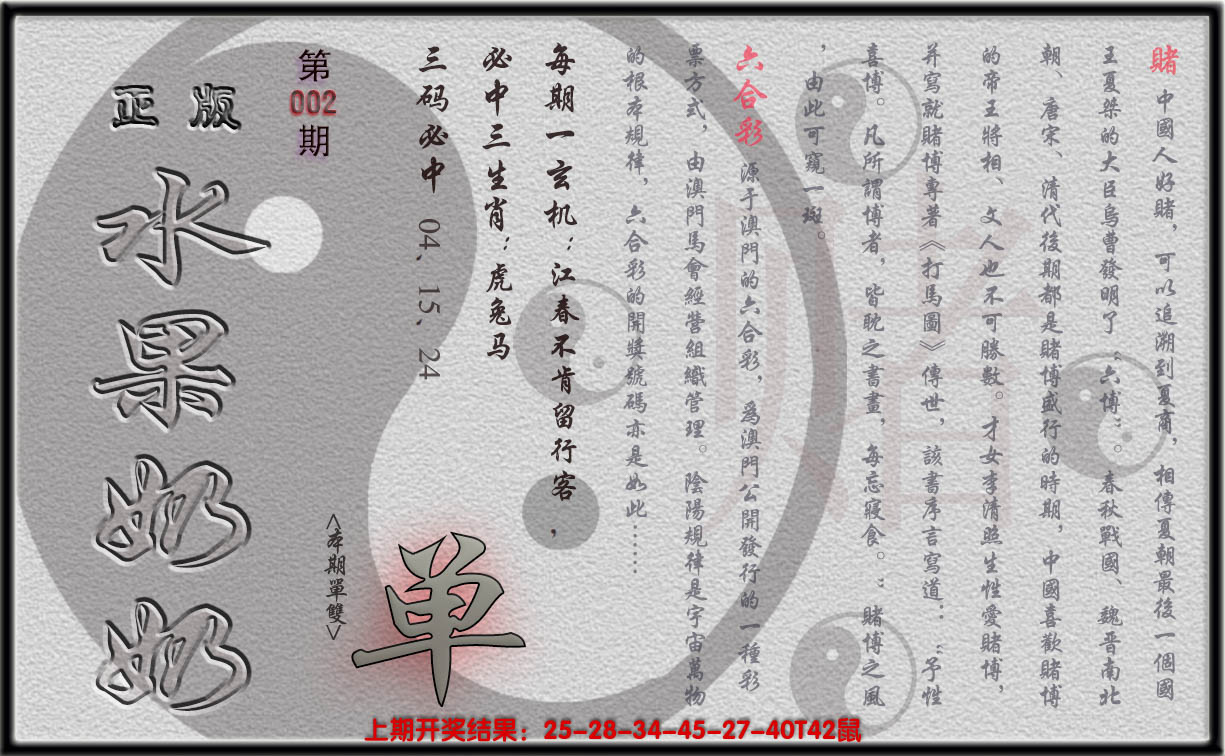 賭 中國人好賭，可以追溯到夏商，相傳夏朝最後一個國
王夏桀的大臣烏曹發明了“六博”。春秋戰國、魏晋南北
朝、唐宋、清代後期都是賭博盛行的時期，中國喜歡賭博
的帝王將相、文人也不可勝數。才女李清照生性愛賭博，
并寫就賭博專著《打馬圖》傳世，該書序言寫道：“予性
喜博。凡所謂博者，皆耽之書晝，每忘寢食。”賭博之風
，由此可窺一斑。
六合彩 源于澳門的六合彩，爲澳門公開發行的一種彩
票方式，由澳門馬會經營組織管理。陰陽規律是宇宙萬物
的根本規律，六合彩的開獎號碼亦是如此……
每期一玄机：江春不肯留行客，
必中三生肖：虎兔马
三码必中 04、15、24
第
002
期
正版
水果奶奶
<本期單雙>
单
上期开奖结果：25-28-34-45-27-40T42鼠